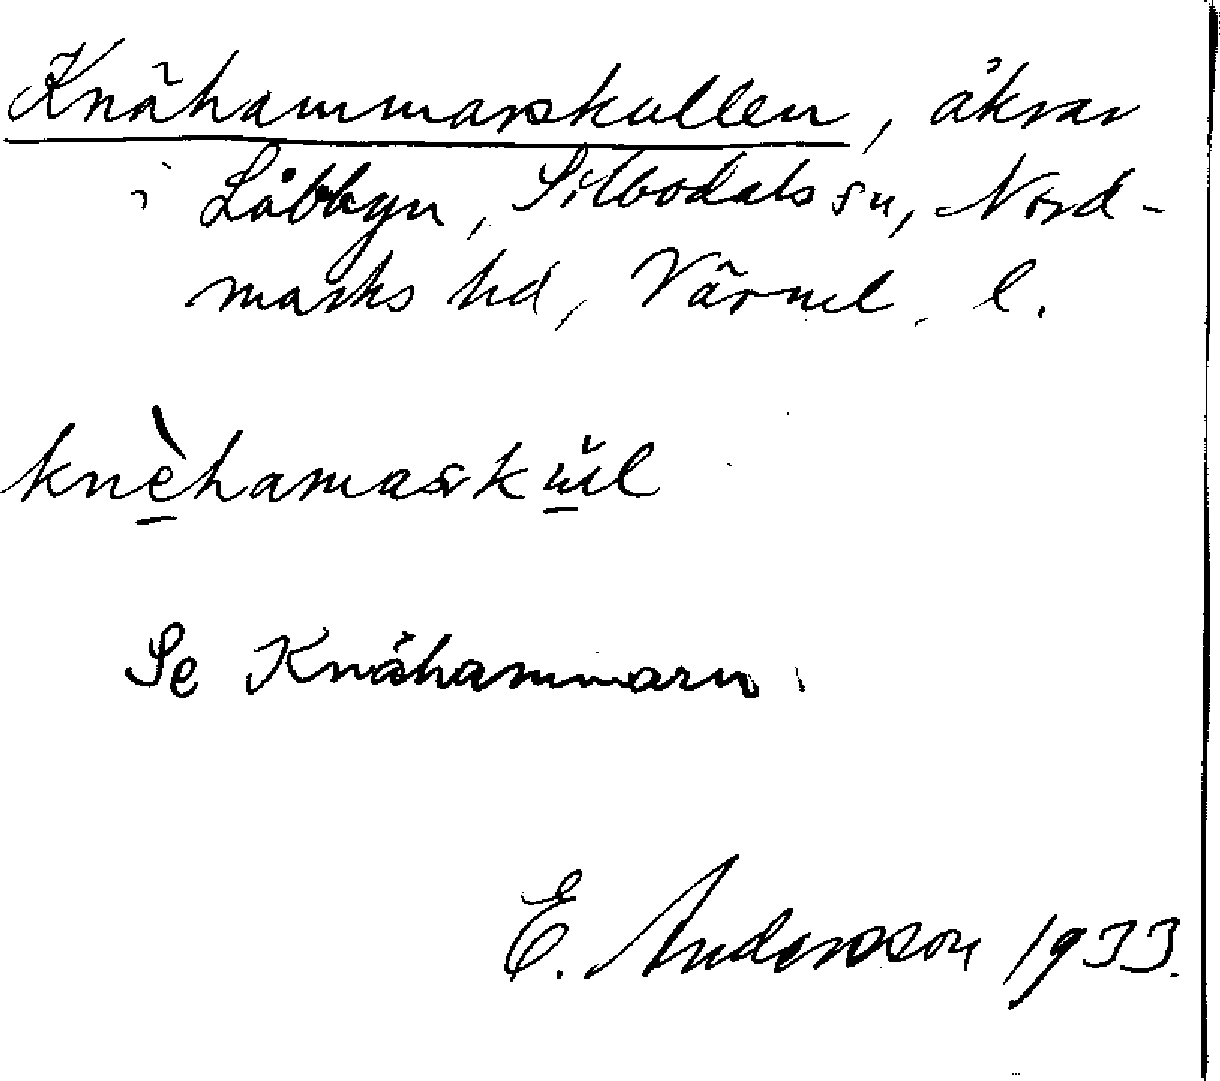 Knähammarskullen, åkrar
i Låbbyn, Silbodals sn, Nord-
marks hd, Värml. l.
knèhamaskul
Se Knähammarn.
E. Andersson 1933.